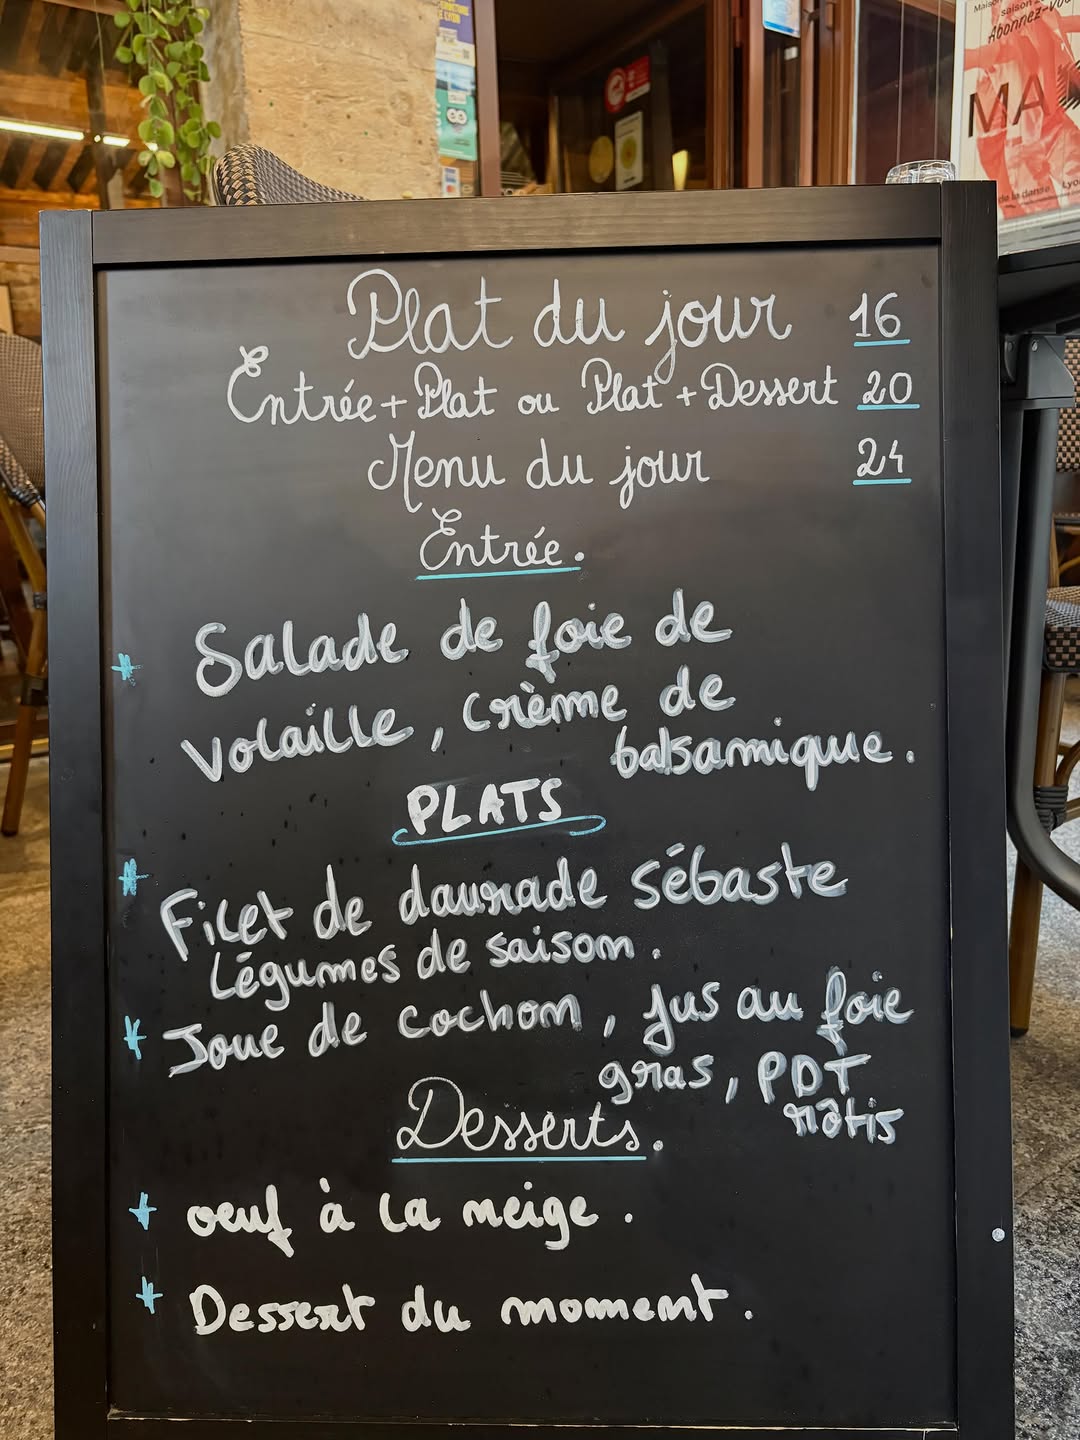 Maison
saison
Abonnez-vous
MA
de la danse Lyo
Plat du jour 16
Entrée + Plat ou Plat + Dessert 20
Menu du jour 24
Entrée.
* Salade de foie de
volaille, crème de
balsamique.
PLATS
* Filet de daurade sébaste
Légumes de saison.
* Joue de cochon, jus au foie
gras, PDT
rôtis
Desserts.
* oeuf à la neige.
* Dessert du moment.